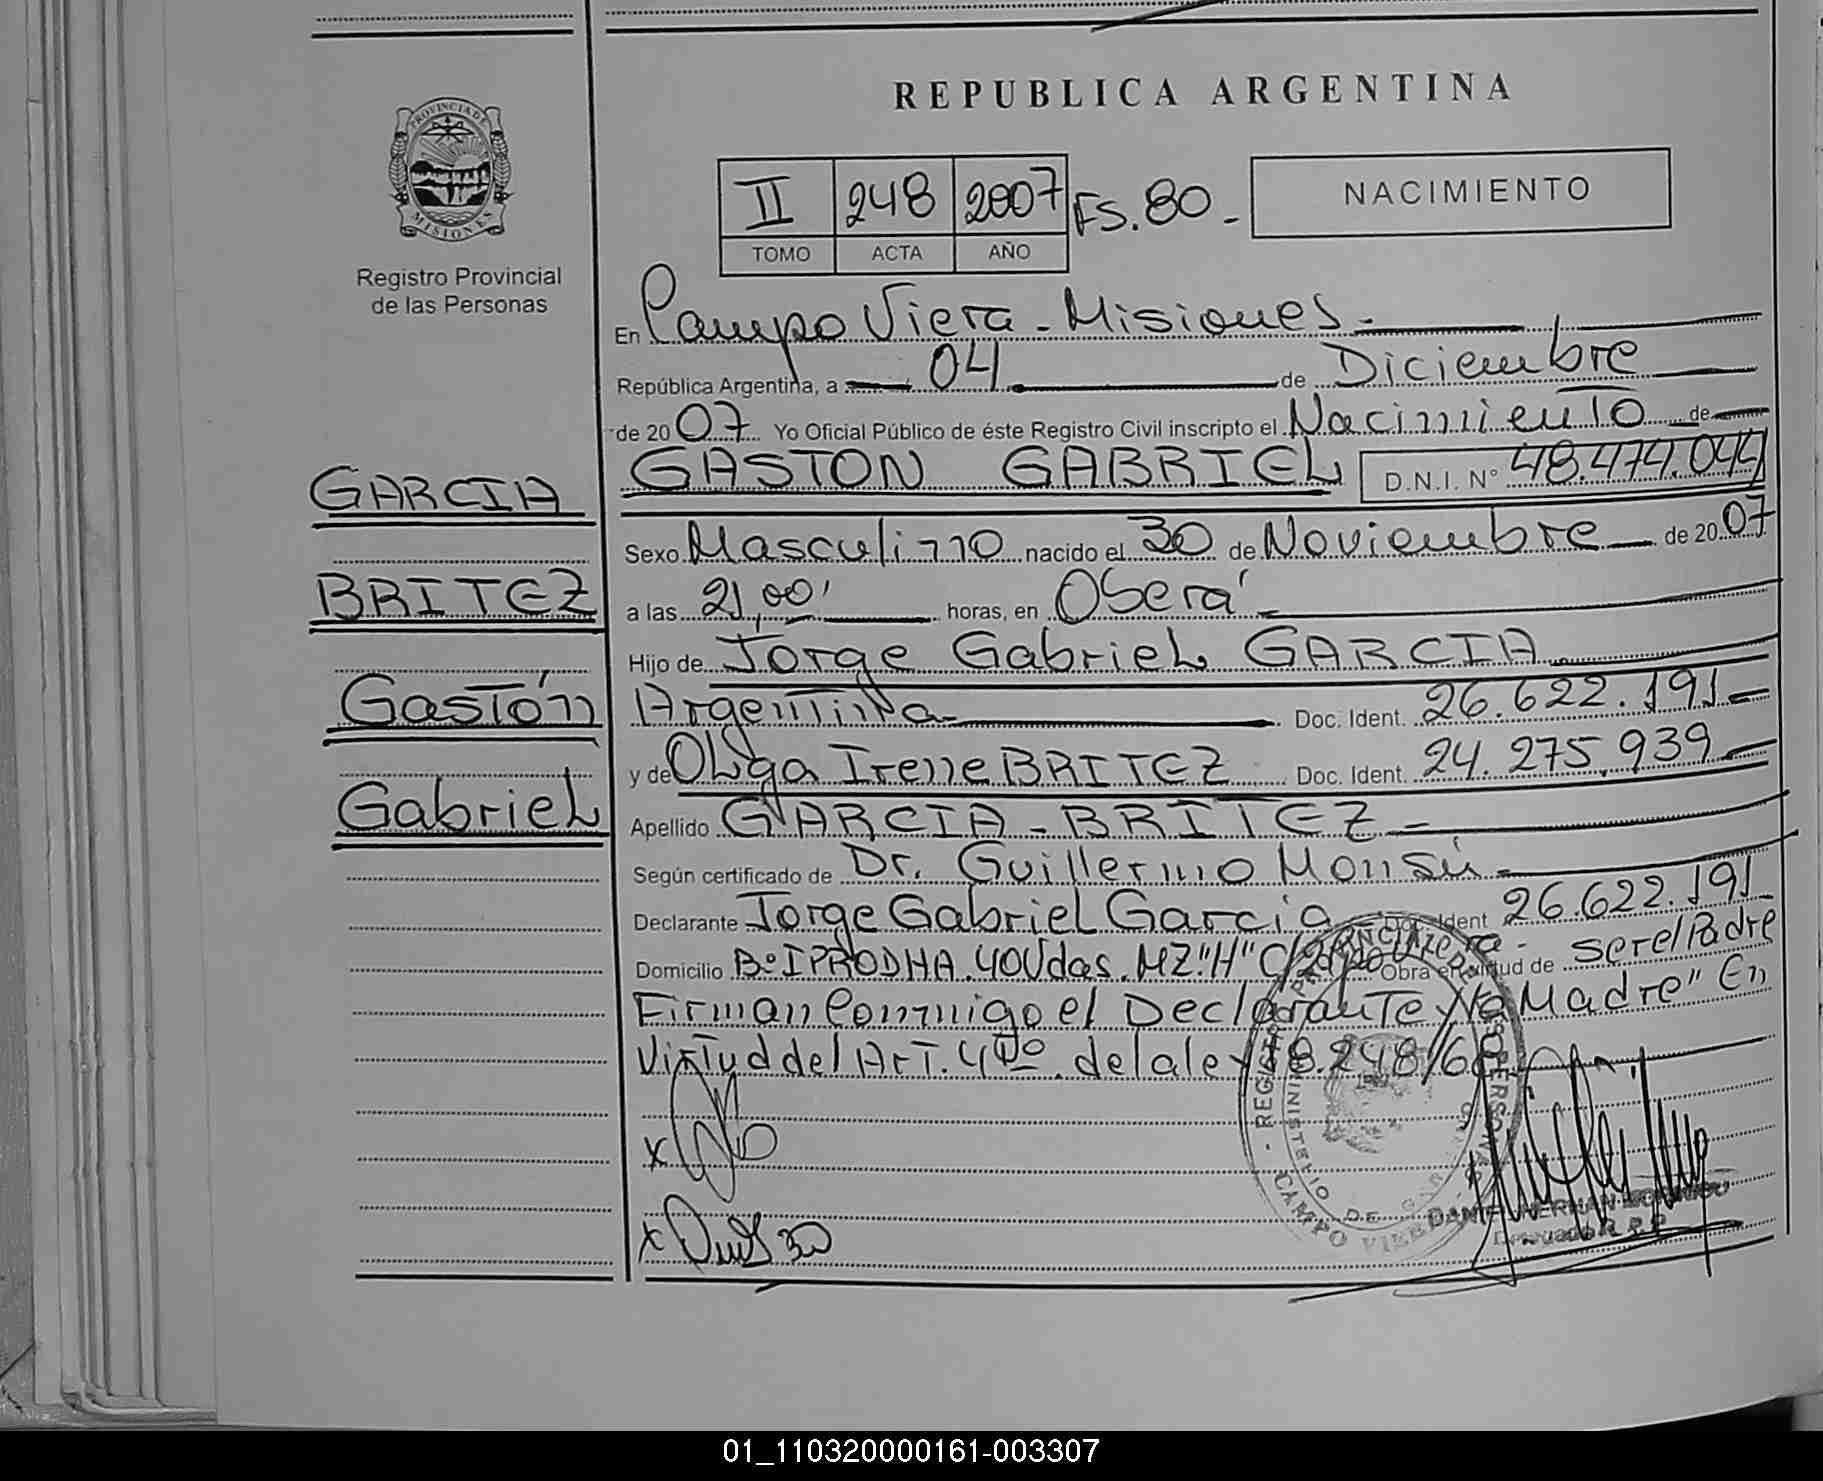 REPUBLICA ARGENTINA
PROVINCIA DE MISIONES
Registro Provincial
de las Personas
II 248 2007 FS. 80.-
TOMO ACTA AÑO
NACIMIENTO
En Campo Viera - Misiones.-
República Argentina, a 04 de Diciembre
de 2007 Yo Oficial Público de éste Registro Civil inscripto el Nacimiento de
GASTON GABRIEL D.N.I. Nº 48.474.044
GARCIA
Sexo Masculino nacido el 30 de Noviembre de 2007
BRITEZ
a las 21,00' horas, en Oberá
Hijo de Jorge Gabriel GARCIA
Gastón
Argentina Doc. Ident. 26.622.191.-
y de Olga Irene BRITEZ Doc. Ident. 24.275.939
Gabriel
Apellido GARCIA - BRITEZ -
Según certificado de Dr. Guillermo Monsú
Declarante Jorge Gabriel Garcia Doc. Ident 26.622.191
Domicilio Bº IPRODHA. 40 Vdas. MZ. "H" Obra en virtud de ser el Padre
Firman Conmigo el Declarante y la Madre" En
Virtud del Art. 4to. de la ley 18.248/
x
x
REGISTRO
MINISTERIO DE
CAMPO VIERA
DANIEL HERNAN
01_110320000161-003307